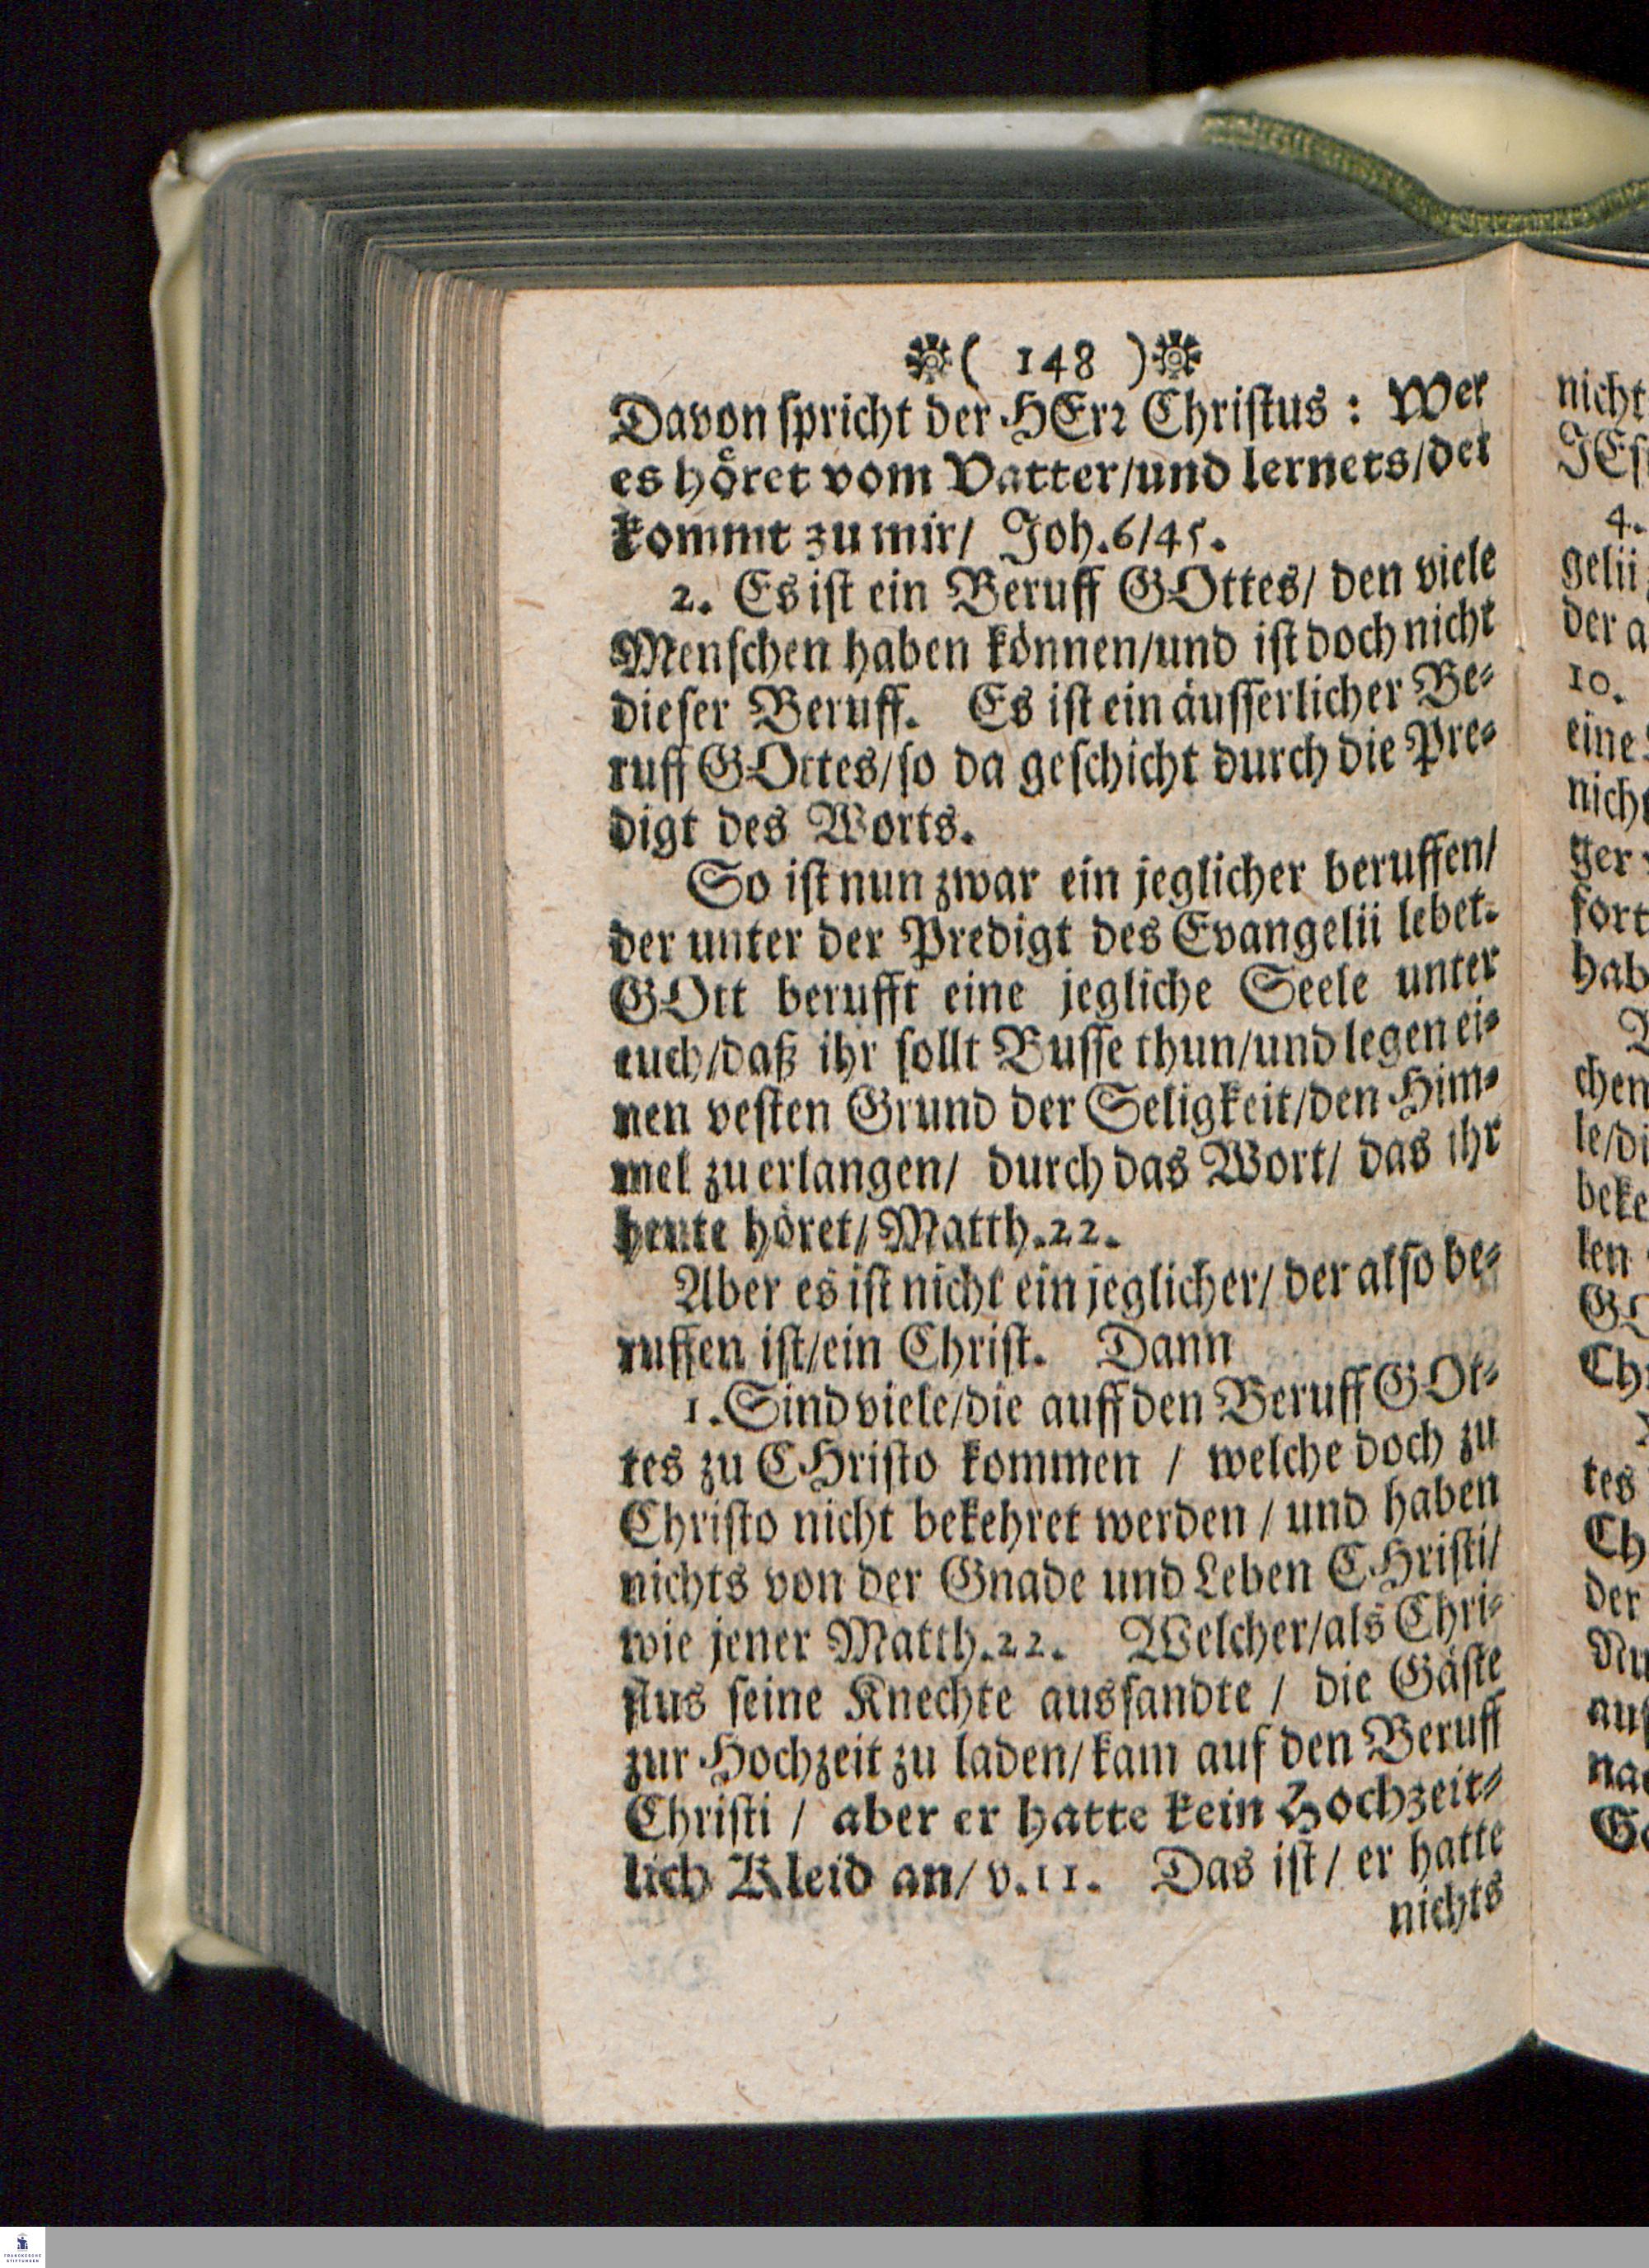 ( 148 )
Davon spricht der HErr Christus : Wer
es höret vom Vatter/und lernets/der
kommt zu mir/ Joh.6/45.
2. Es ist ein Beruff GOttes/ den viele
Menschen haben können/und ist doch nicht
dieser Beruff. Es ist ein äusserlicher Be-
ruff GOttes/so da geschicht durch die Pre-
digt des Worts.
So ist nun zwar ein jeglicher beruffen/
der unter der Predigt des Evangelii lebet.
GOtt berufft eine jegliche Seele unter
euch/daß ihr sollt Busse thun/und legen ei-
nen vesten Grund der Seligkeit/den Him-
mel zu erlangen/ durch das Wort/ das ihr
heute höret/Matth.22.
Aber es ist nicht ein jeglicher/ der also be-
ruffen ist/ein Christ. Dann
1. Sind viele/die auff den Beruff GOt-
tes zu CHristo kommen / welche doch zu
Christo nicht bekehret werden / und haben
nichts von der Gnade und Leben CHristi/
wie jener Matth.22. Welcher/als Chri-
stus seine Knechte aussandte / die Gäste
zur Hochzeit zu laden/kam auf den Beruff
Christi / aber er hatte kein Hochzeit-
lich Kleid an/ v.11. Das ist/ er hatte
nichts
nicht
4.
gelii
der a
10.
eine
nicht
ger
fort
hab
chen
le/di
beke
len
tes
Ch
der
FRANCKESCHE
STIFTUNGEN